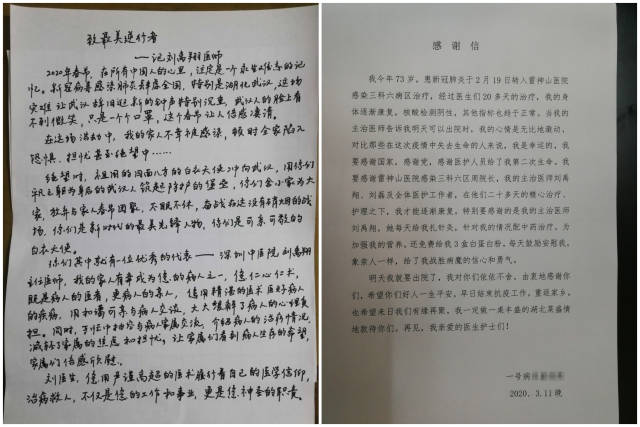 致最美逆行者
——记刘禹翔医师
2020年春节，在所有中国人的心里，注定是一个永生难忘的记
忆。新冠病毒感染肺炎肆虐全国，特别是湖北武汉，这场
灾难让武汉辞旧迎新的钟声特别沉重，武汉人的脸上看
不到微笑，只是一个个口罩，这个春节让人倍感凄清。
在这场浩劫中，我的家人不幸被感染，顿时全家陷入
恐惧、担忧甚至绝望中……
绝望时，祖国的四面八方的白衣天使冲向武汉，用你们
的为武汉人筑起防护的堡垒，你们舍小家为大
家，放弃与家人春节团聚，不眠不休，奋战在这没有硝烟的战
场，你们是新时代的最美先锋人物，你们是可亲可敬的
白衣天使。
你们其中就有一位优秀的代表——深圳中医院刘禹翔
主任医师，我的家人有幸成为您的病人之一，您仁心仁术，
既是病人的医者，更病人的亲人，您用精湛的医术医好病人
的疾病，用和谐可亲与病人交谈，大大缓解了病人的心理负
担。同时，于忙中抽空与病人家属交流，介绍病人的治疗情况，
减轻了家属的焦虑和担忧，让家属们看到病人生存的希望，
家属们倍感欣慰。
刘医生，您用严谨高超的医术履行着自己的医学信仰，
治病救人，不仅是您的工作和事业，更是您神圣的职责。
感谢信
我今年73岁，患新冠肺炎于2月19日转入雷神山医院
感染三科六病区治疗，经过医生们20多天的治疗，我的身
体逐渐康复，核酸检测阴性，其他指标也趋于正常。当我的
主治医师告诉我明天可以出院时，我的心情是无比地激动，
对比那些在这次疫情中失去生命的人来说，我是幸运的，我
要感谢国家，感谢党，感谢医护人员给了我第二次生命。我
要感谢雷神山医院感染三科六区周院长，我的主治医师刘禹
翔、刘磊及全体医护工作者，在他们二十多天的精心治疗、
护理之下，我才能逐渐康复，特别要感谢的是我的主治医师
刘禹翔，她每天给我扎针灸，针对我的情况配中药治疗。为
加强我的营养，还免费给我3盒白蛋白粉，每天鼓励安慰我，
象亲人一样，给了我战胜病魔的信心和勇气。
明天我就要出院了，我对你们依依不舍。由衷地感谢你
们，希望你们好人一生平安，早日结束抗疫工作，重返家乡，
也希望来日我们有缘再聚，我一定做一桌丰盛的湖北菜盛情
地款待你们。再见，我亲爱的医生护士们！
一号病
2020.3.11晚